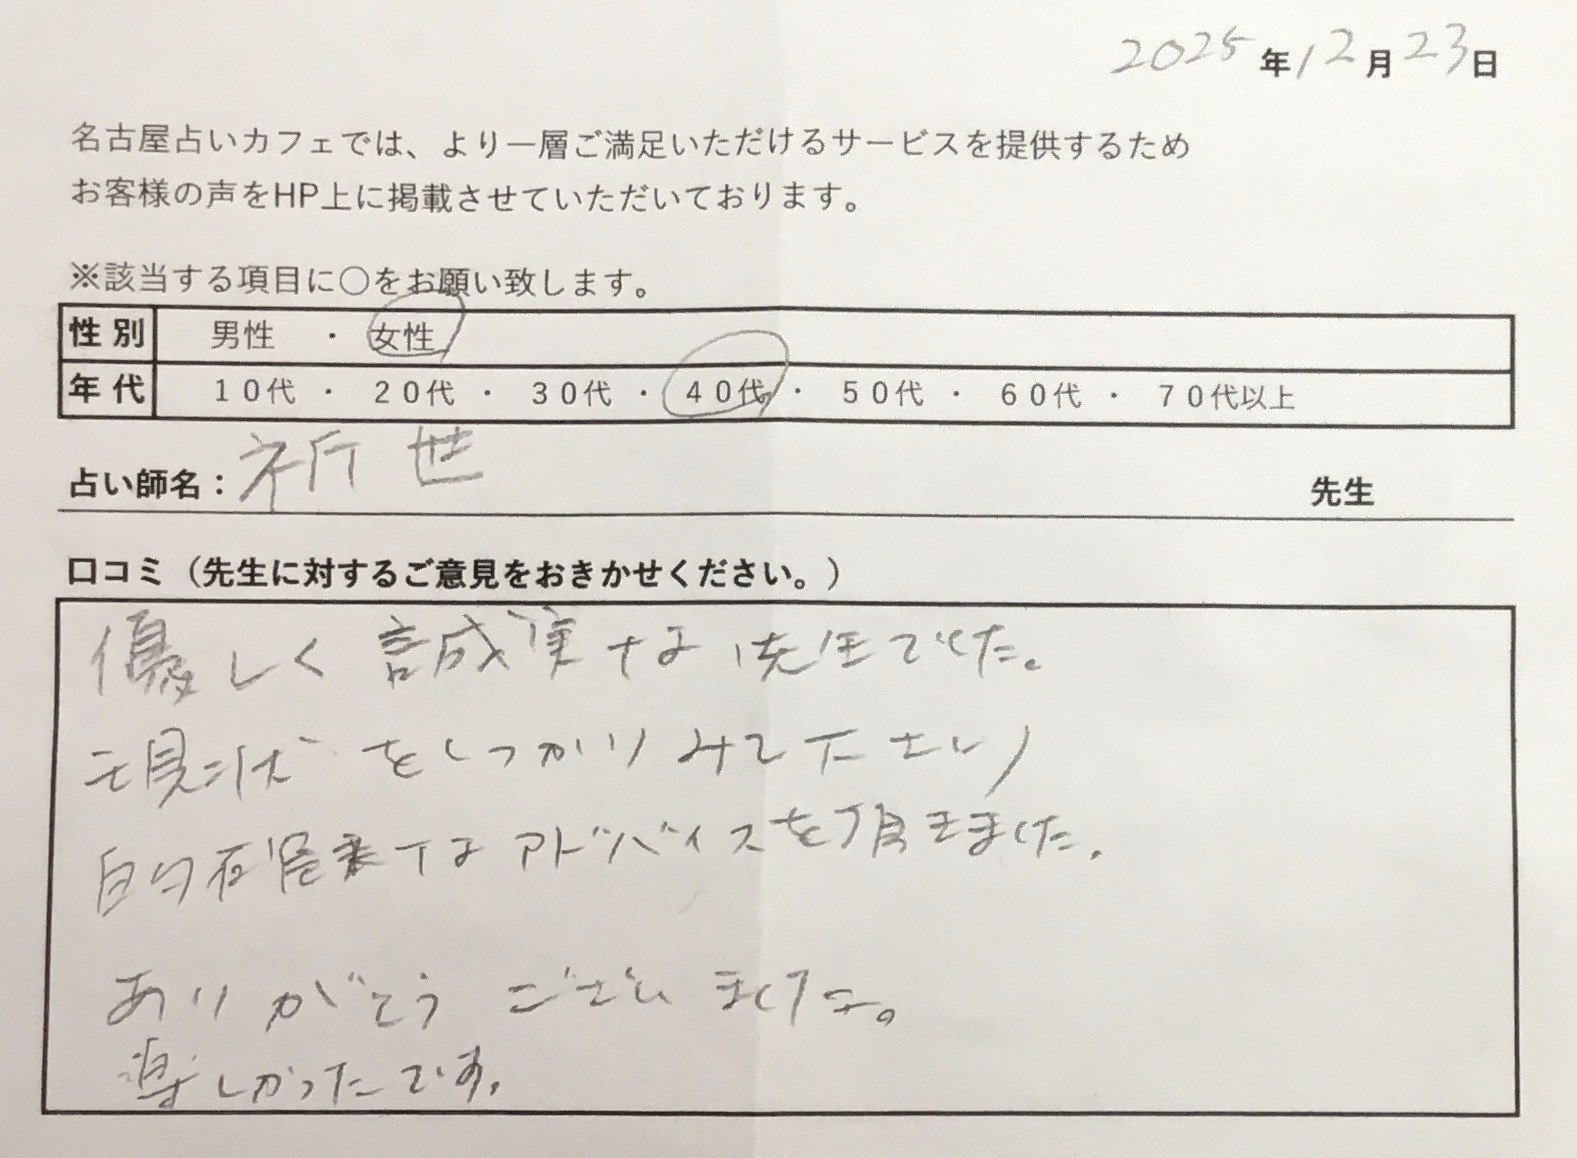 2025年12月23日
名古屋占いカフェでは、より一層ご満足いただけるサービスを提供するため
お客様の声をHP上に掲載させていただいております。
※該当する項目に〇をお願い致します。
性別 男性 ・ 女性
年代 10代 ・ 20代 ・ 30代 ・ 40代 ・ 50代 ・ 60代 ・ 70代以上
占い師名：祈世 先生
口コミ（先生に対するご意見をおきかせください。）
優しく誠実な先生でした。
現状をしっかりみて下さり
的確なアドバイスを頂きました。
ありがとうございました。
楽しかったです。